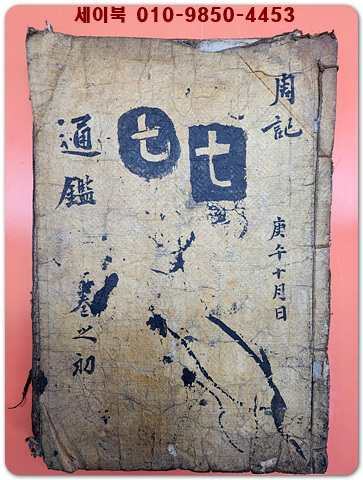 세이북 010-9850-4453
周記
庚午十月日
七
七
通鑑
之初